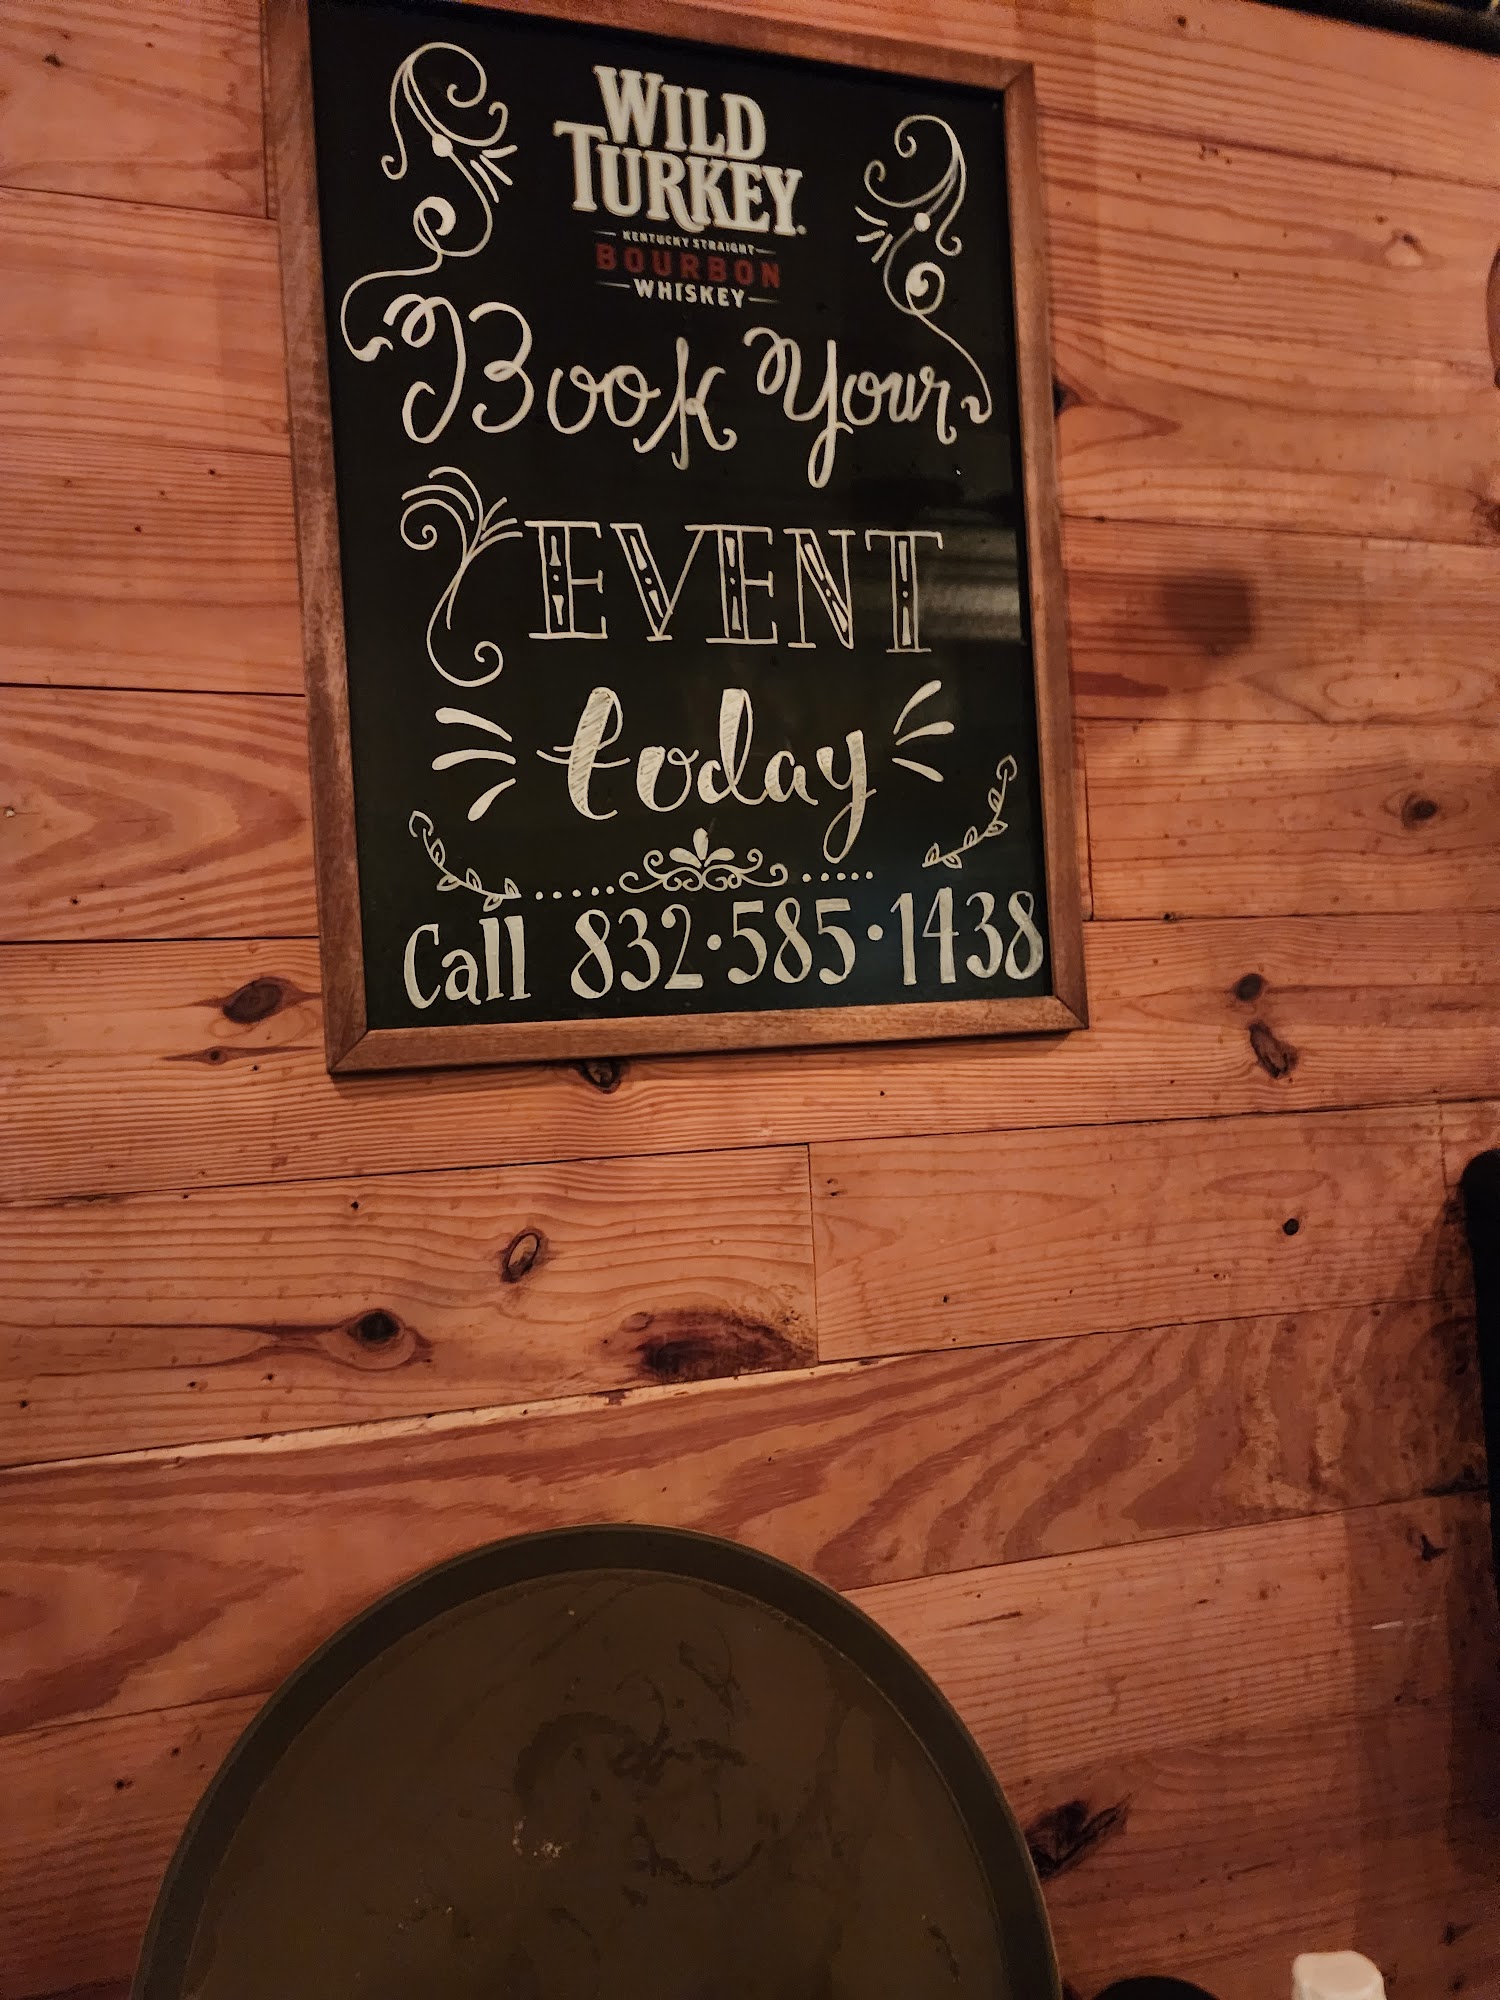 WILD
TURKEY
KENTUCKY STRAIGHT
BOURBON
WHISKEY
Book Your
EVENT
today
Call 832·585·1438